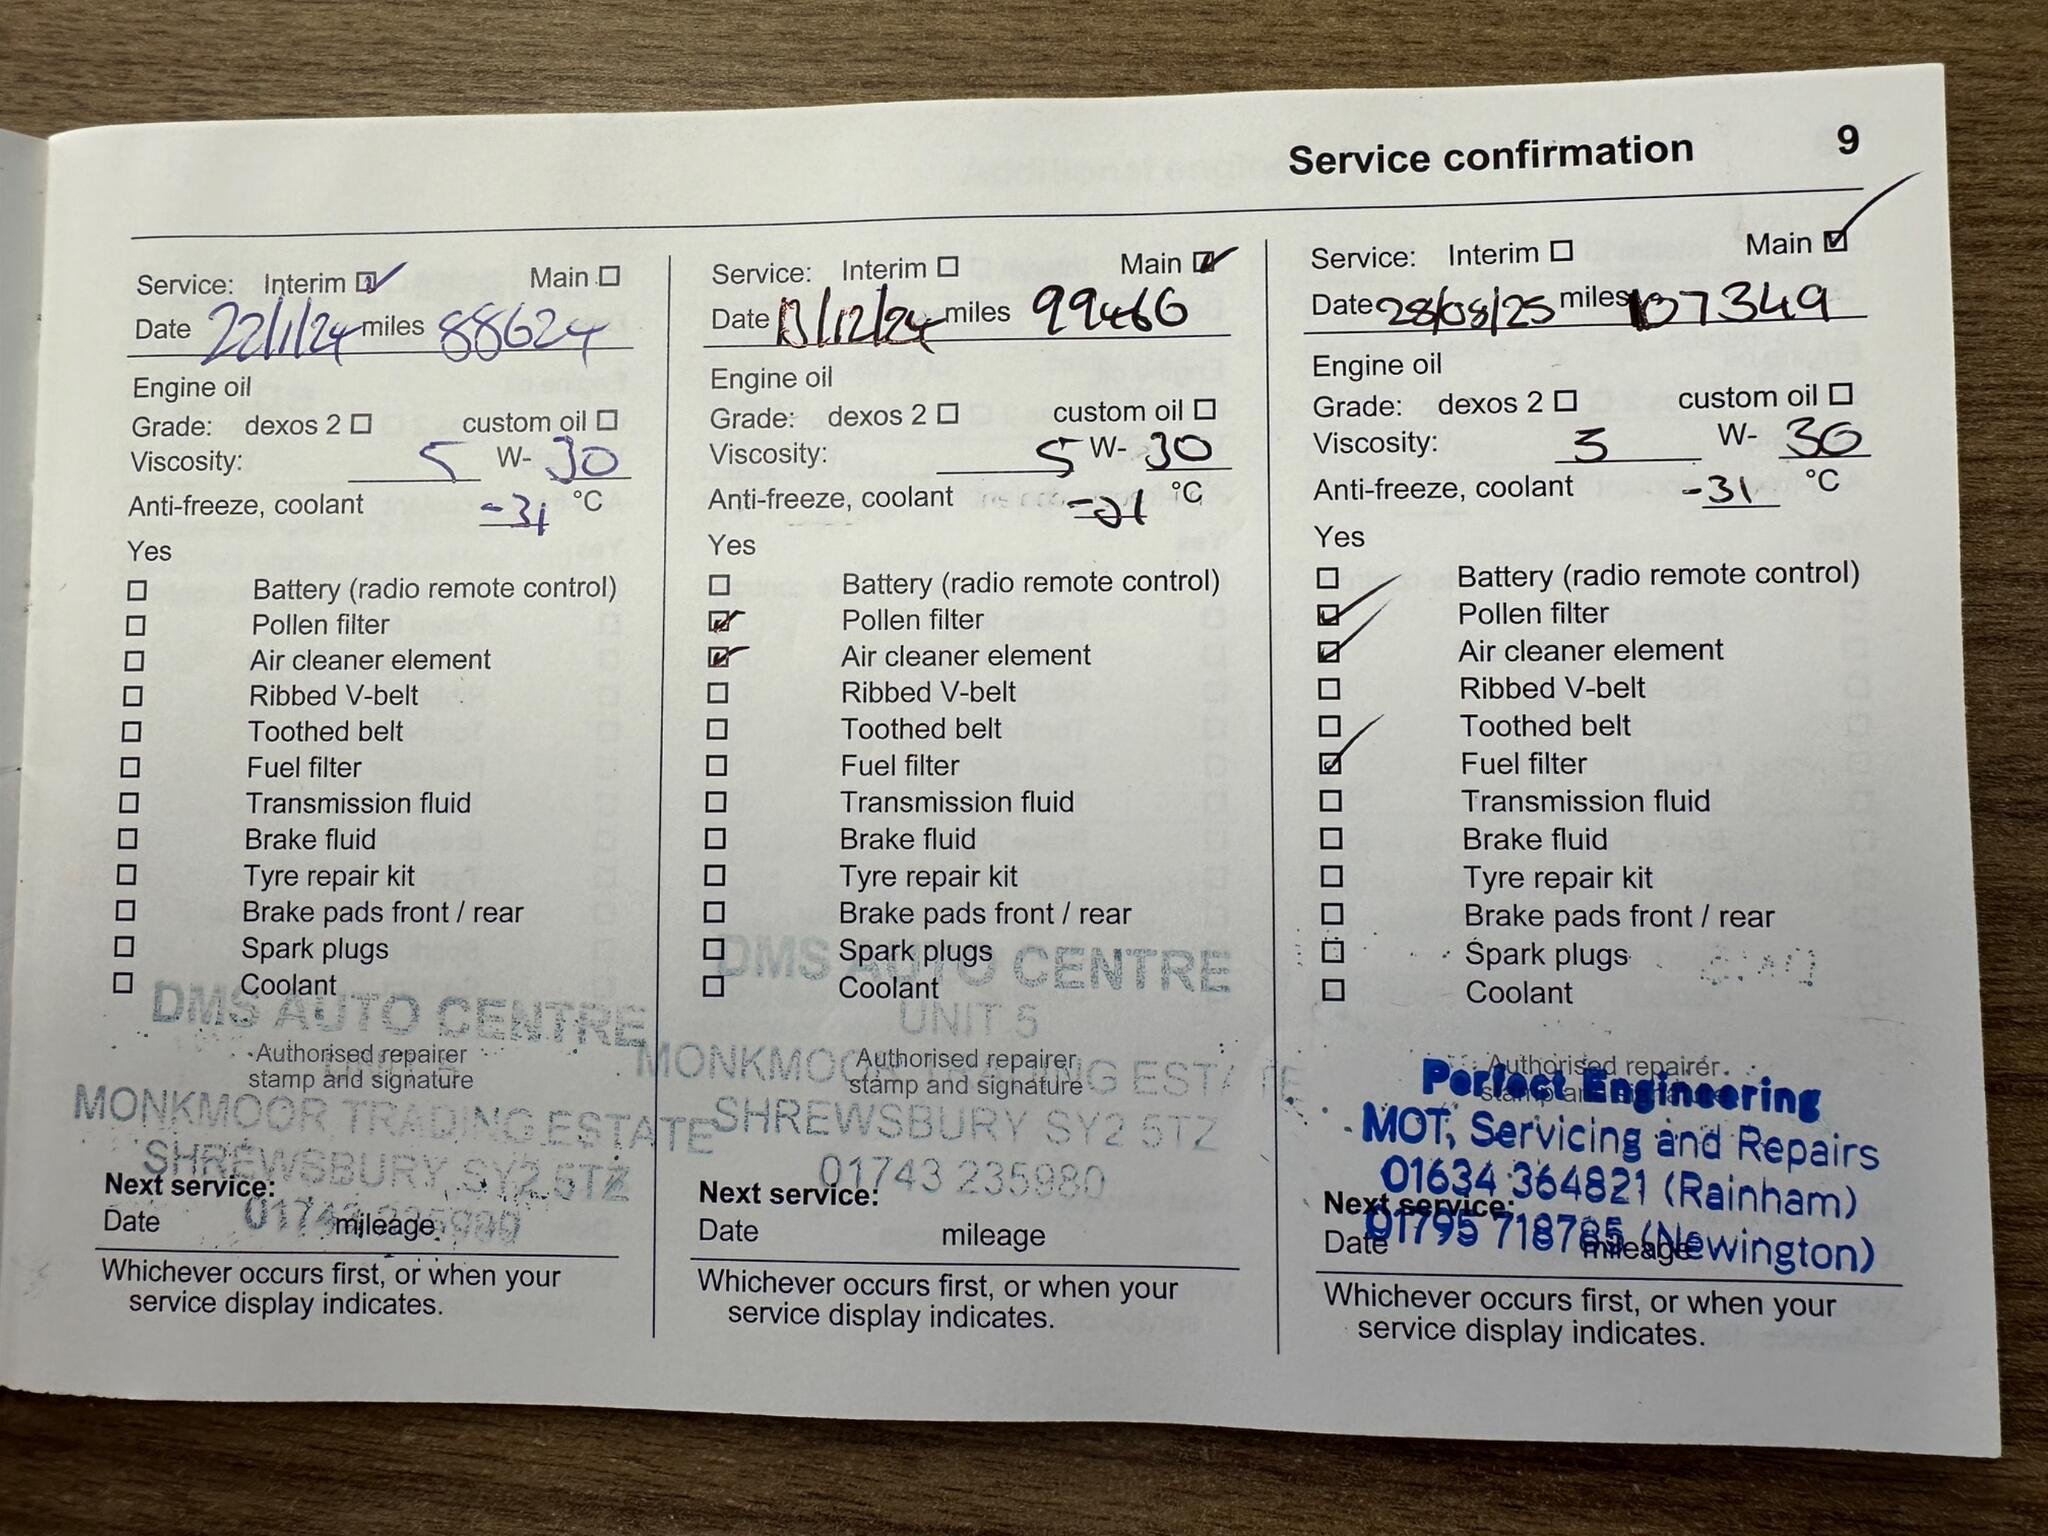 Service confirmation 9
Service: Interim Main
Date 22/1/24 miles 88624
Engine oil
Grade: dexos 2 custom oil
Viscosity: 5 W- 30
Anti-freeze, coolant -31 °C
Yes
Battery (radio remote control)
Pollen filter
Air cleaner element
Ribbed V-belt
Toothed belt
Fuel filter
Transmission fluid
Brake fluid
Tyre repair kit
Brake pads front / rear
Spark plugs
Coolant
DMS AUTO CENTRE
Authorised repairer
UNIT 5
stamp and signature
MONKMOOR TRADING ESTATE
SHREWSBURY SY2 5TZ
Next service:
01743 235980
Date mileage
Whichever occurs first, or when your
service display indicates.
Service: Interim Main
Date 13/12/24 miles 99466
Engine oil
Grade: dexos 2 custom oil
Viscosity: 5 W- 30
Anti-freeze, coolant °C
Yes
Battery (radio remote control)
Pollen filter
Air cleaner element
Ribbed V-belt
Toothed belt
Fuel filter
Transmission fluid
Brake fluid
Tyre repair kit
Brake pads front / rear
Spark plugs
DMS AUTO CENTRE
Coolant
UNIT 5
Authorised repairer
MONKMOOR TRADING ESTATE
stamp and signature
SHREWSBURY SY2 5TZ
01743 235980
Next service:
Date mileage
Whichever occurs first, or when your
service display indicates.
Service: Interim Main
Date 28/08/25 miles 107349
Engine oil
Grade: dexos 2 custom oil
Viscosity: 5 W- 30
Anti-freeze, coolant -31 °C
Yes
Battery (radio remote control)
Pollen filter
Air cleaner element
Ribbed V-belt
Toothed belt
Fuel filter
Transmission fluid
Brake fluid
Tyre repair kit
Brake pads front / rear
Spark plugs
Coolant
Authorised repairer
Perfect Engineering
stamp and signature
MOT, Servicing and Repairs
01634 364821 (Rainham)
Next service:
01795 718785 (Newington)
Date mileage
Whichever occurs first, or when your
service display indicates.